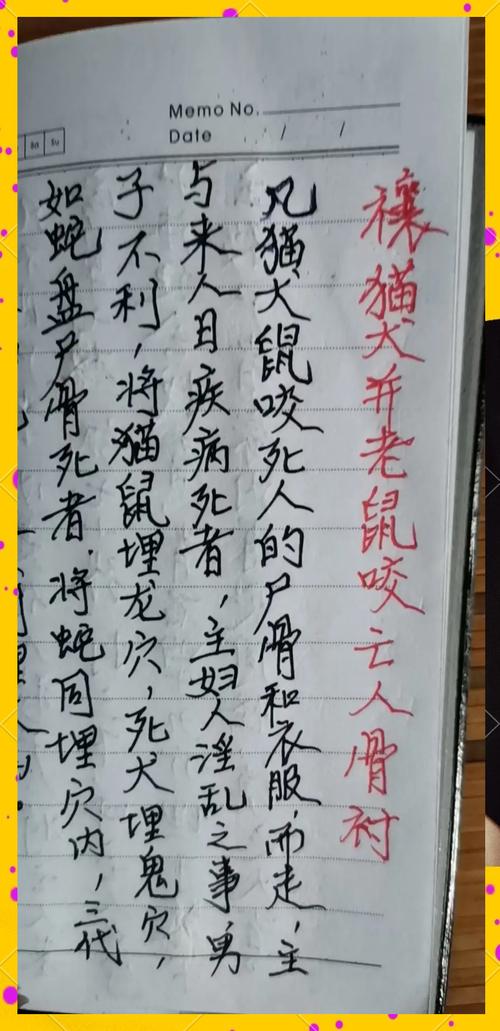 Memo No.
Date / /
Sa Su
禳猫犬并老鼠咬亡人骨衬
凡猫犬鼠咬死人的尸骨和衣服，而走，主
与来人日疾病死者，主妇人淫乱之事，男
子不利，将猫鼠埋龙穴，死犬埋鬼穴，
如蛇盘尸骨死者，将蛇同埋穴内，三代